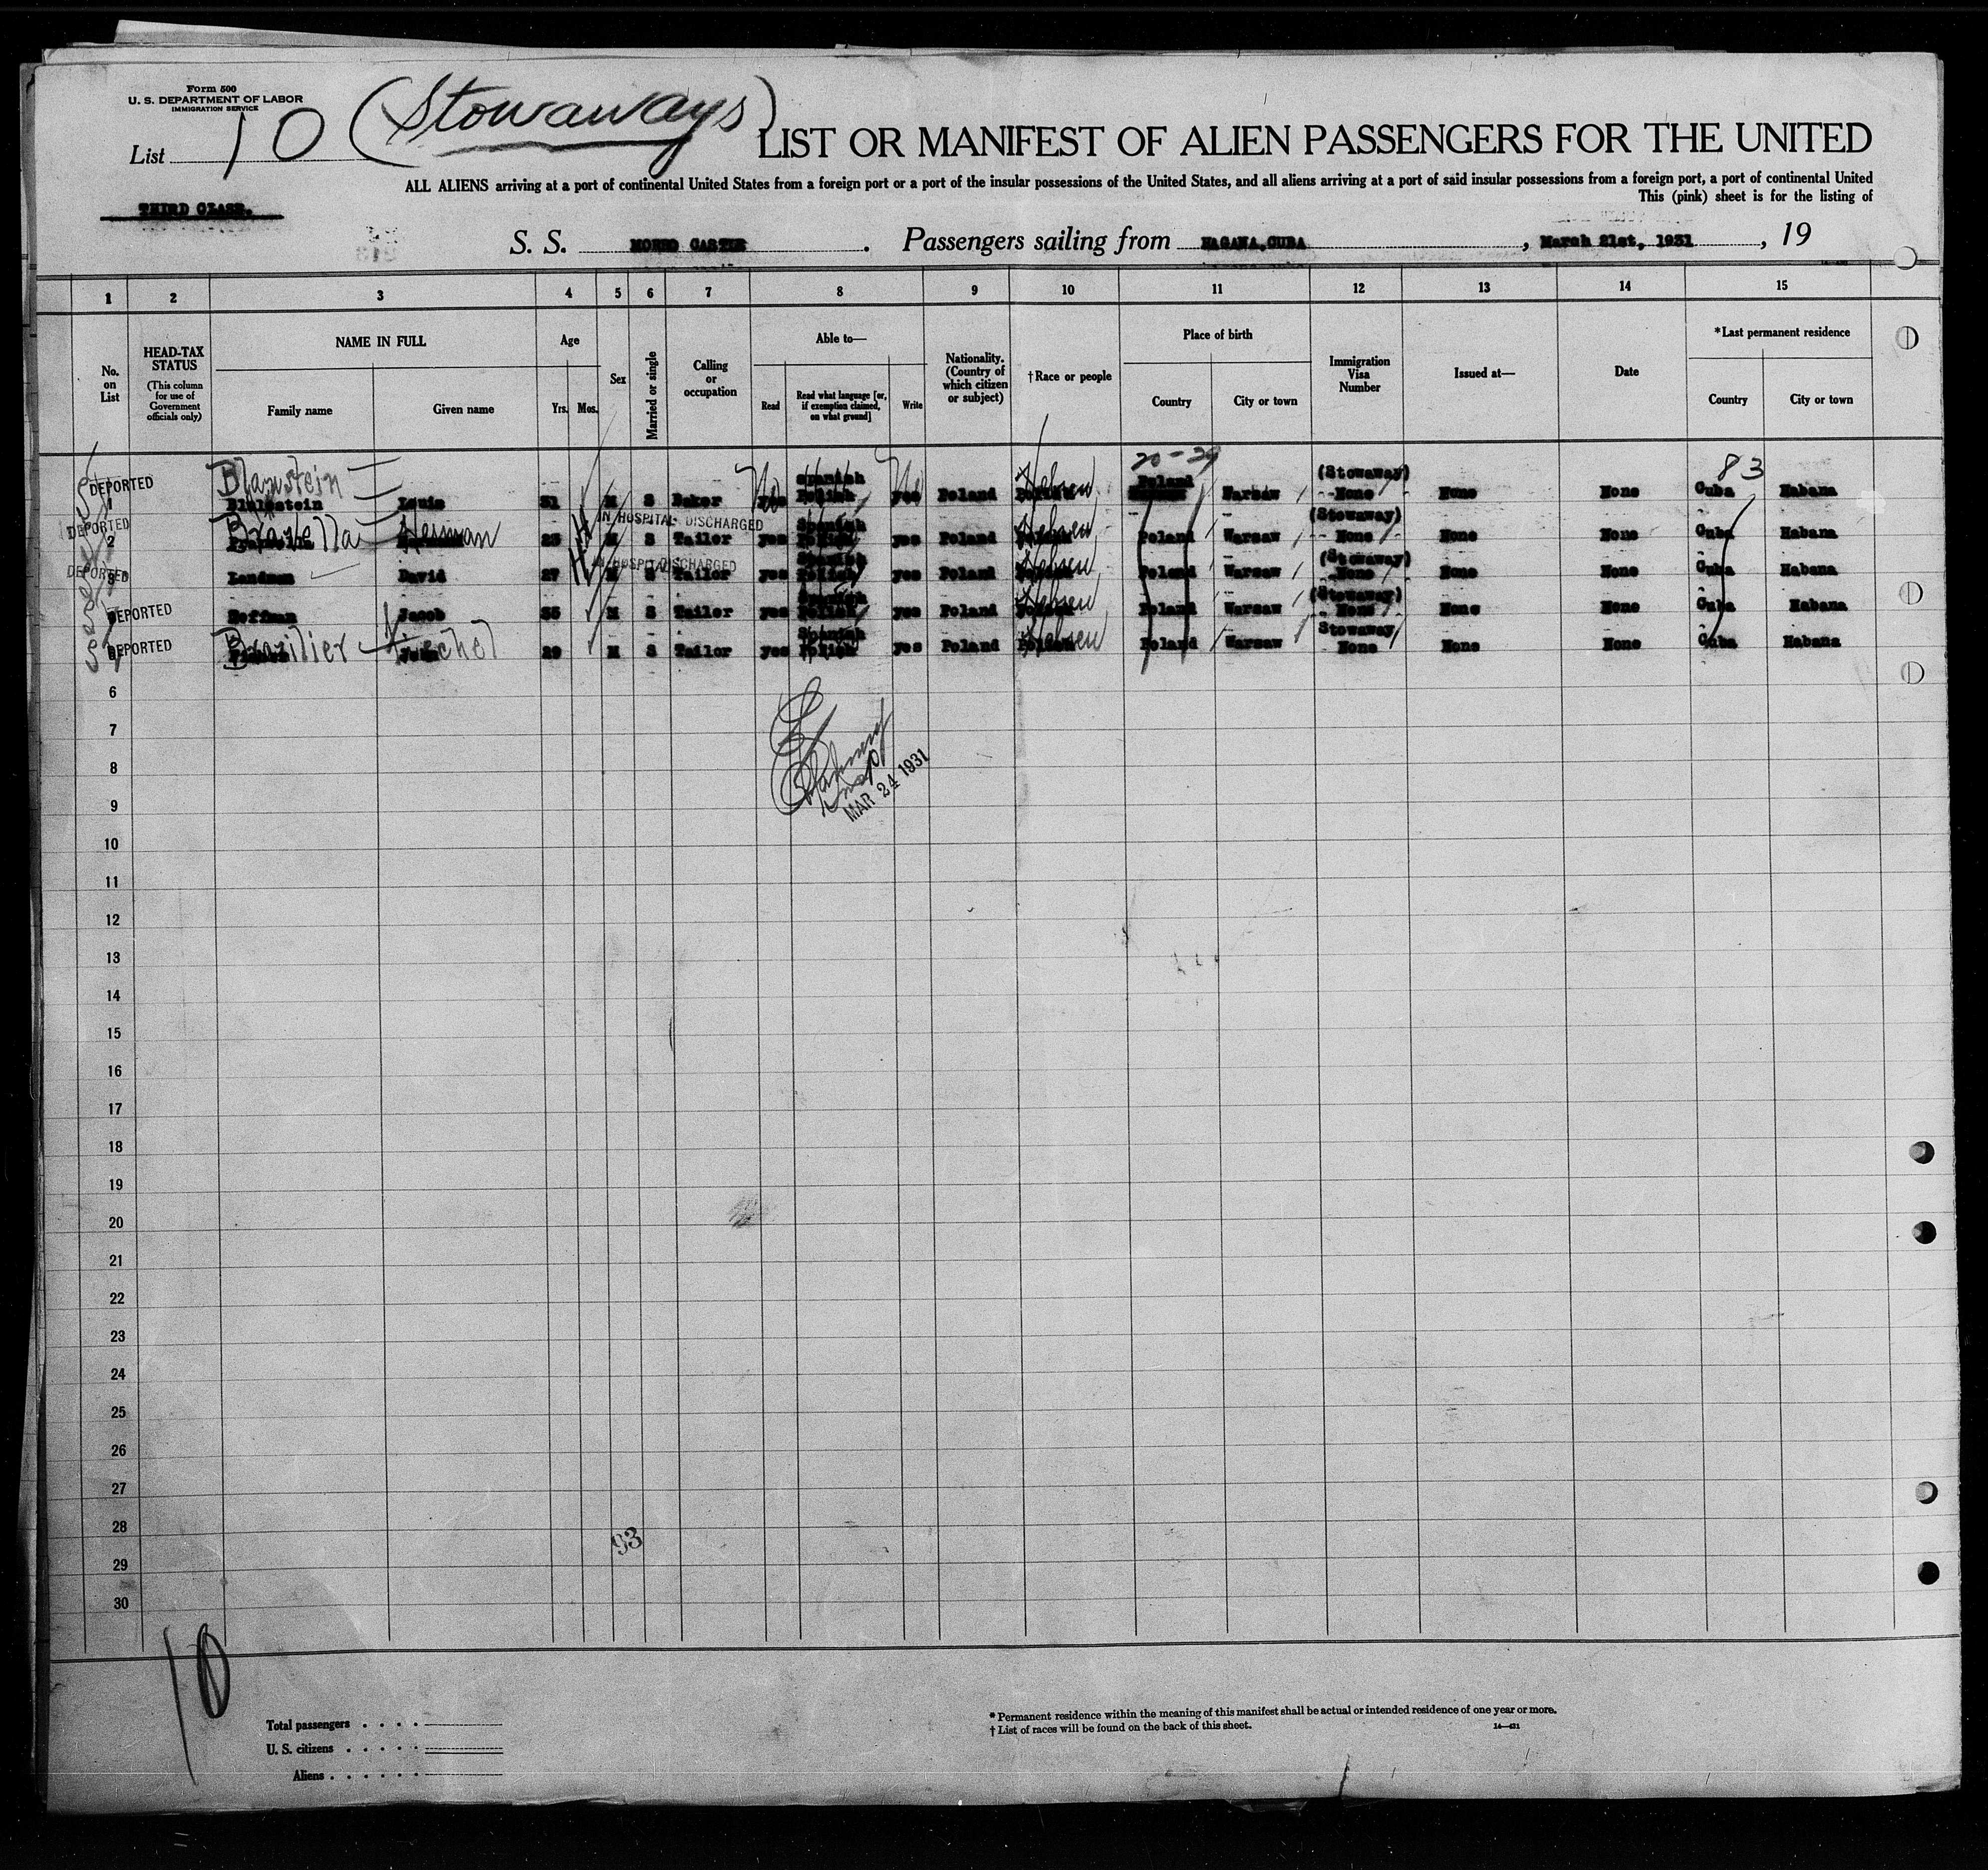 Form 500
U. S. DEPARTMENT OF LABOR
IMMIGRATION SERVICE
List 10 (Stowaways)
LIST OR MANIFEST OF ALIEN PASSENGERS FOR THE UNITED
ALL ALIENS arriving at a port of continental United States from a foreign port or a port of the insular possessions of the United States, and all aliens arriving at a port of said insular possessions from a foreign port, a port of continental United
This (pink) sheet is for the listing of
THIRD CLASS.
S. S. MORRO CASTLE. Passengers sailing from HAGANA, CUBA, March 21st, 1931, 19
1 2 3 4 5 6 7 8 9 10 11 12 13 14 15
No. on List
HEAD-TAX STATUS (This column for use of Government officials only)
NAME IN FULL
Family name Given name
Age
Yrs. Mos.
Sex
Married or single
Calling or occupation
Able to—
Read Read what language [or, if exemption claimed, on what ground] Write
Nationality. (Country of which citizen or subject)
†Race or people
Place of birth
Country City or town
Immigration Visa Number
Issued at—
Date
*Last permanent residence
Country City or town
20-29 83
DEPORTED 1 Blaustein Louis 31 M S Baker No yes Spanish Polish No yes Poland Polish Hebrew Poland Warsaw (Stowaway) None None None Cuba Habana
IN HOSPITAL DISCHARGED
DEPORTED 2 Herman 23 M S Tailor yes Spanish Polish yes Poland Polish Hebrew Poland Warsaw (Stowaway) None None None Cuba Habana
IN HOSPITAL DISCHARGED
DEPORTED 3 Landman David 27 M S Tailor yes Spanish Polish yes Poland Polish Hebrew Poland Warsaw (Stowaway) None None None Cuba Habana
DEPORTED Hoffman Jacob 35 M S Tailor yes Spanish Polish yes Poland Polish Hebrew Poland Warsaw (Stowaway) None None None Cuba Habana
DEPORTED Brazilier 29 M S Tailor yes Spanish Polish yes Poland Polish Hebrew Poland Warsaw Stowaway None None None Cuba Habana
6
7
8
MAR 24 1931
9
10
11
12
13
14
15
16
17
18
19
20
21
22
23
24
25
26
27
28
93
29
30
10
Total passengers
U. S. citizens
Aliens
* Permanent residence within the meaning of this manifest shall be actual or intended residence of one year or more.
† List of races will be found on the back of this sheet.
14—421